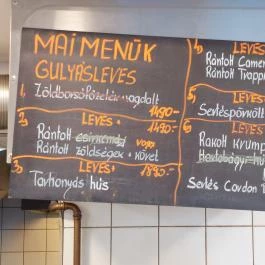 MAI MENÜK
GULYÁSLEVES
1, Zöldborsófőzelék vagdalt
1490.-
2, LEVES+ 1490.-
Rántott csirkemáj vagy
Rántott zöldségek + köret
3, LEVES+ 1890.-
Tarhonyás hús
4, LEVES
Rántott Camem
Rántott Trapp
5, LEVES
Sertéspörkölt
6, LEVES
Rakott Krump
Sertés Cordon